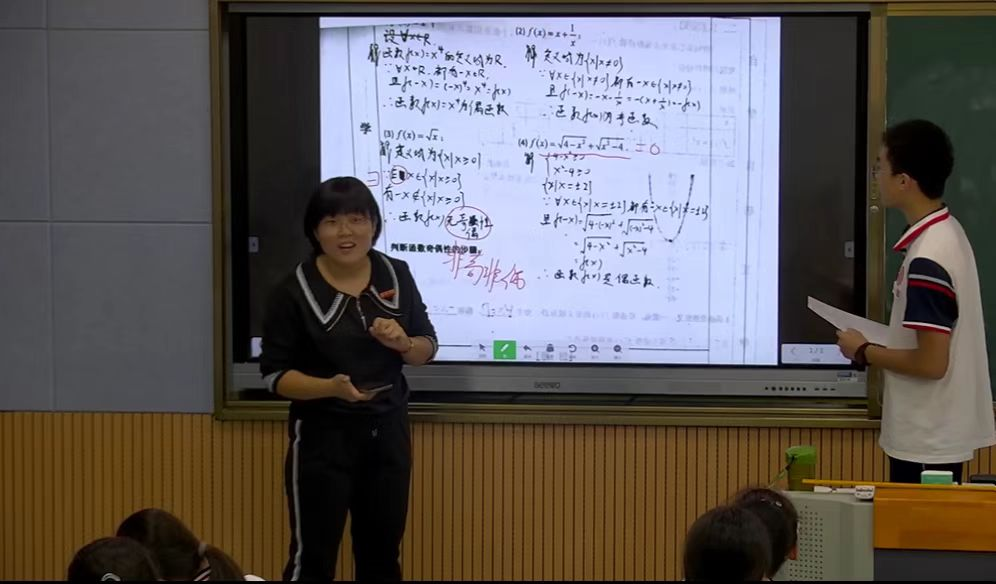 设∀x∈R.
解 函数f(x)=x⁴的定义域为R.
∵∀x∈R.都有-x∈R.
且f(-x)=(-x)⁴=x⁴=f(x)
∴函数f(x)=x⁴为偶函数
(2) f(x)=x+1/x;
解 定义域为{x|x≠0}
∵∀x∈{x|x≠0},都有-x∈{x|x≠0}
且f(-x)=-x-1/x=-(x+1/x)=-f(x)
∴函数f(x)为奇函数
学
(3) f(x)=√x;
解 定义域为{x|x≥0}
∃
x∈{x|x≥0}
有-x∉{x|x≥0}
∴函数f(x)无奇偶性
非奇非偶
(4) f(x)=√(4-x²)+√(x²-4). =0
解 {4-x²≥0
x²-4≥0
{x|x=±2}
∵∀x∈{x|x=±2},都有-x∈{x|x=±2}
且f(-x)=√(4-(-x)²)+√((-x)²-4)
=√(4-x²)+√(x²-4)
=f(x)
∴函数f(x)是偶函数.
判断函数奇偶性的步骤:
seewo